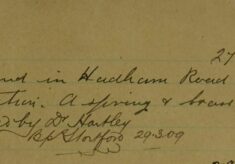 27
nd in Hadham Road
tion. A spring & brass
ed by Dr Hartley
Bp Stortford 29.3.09